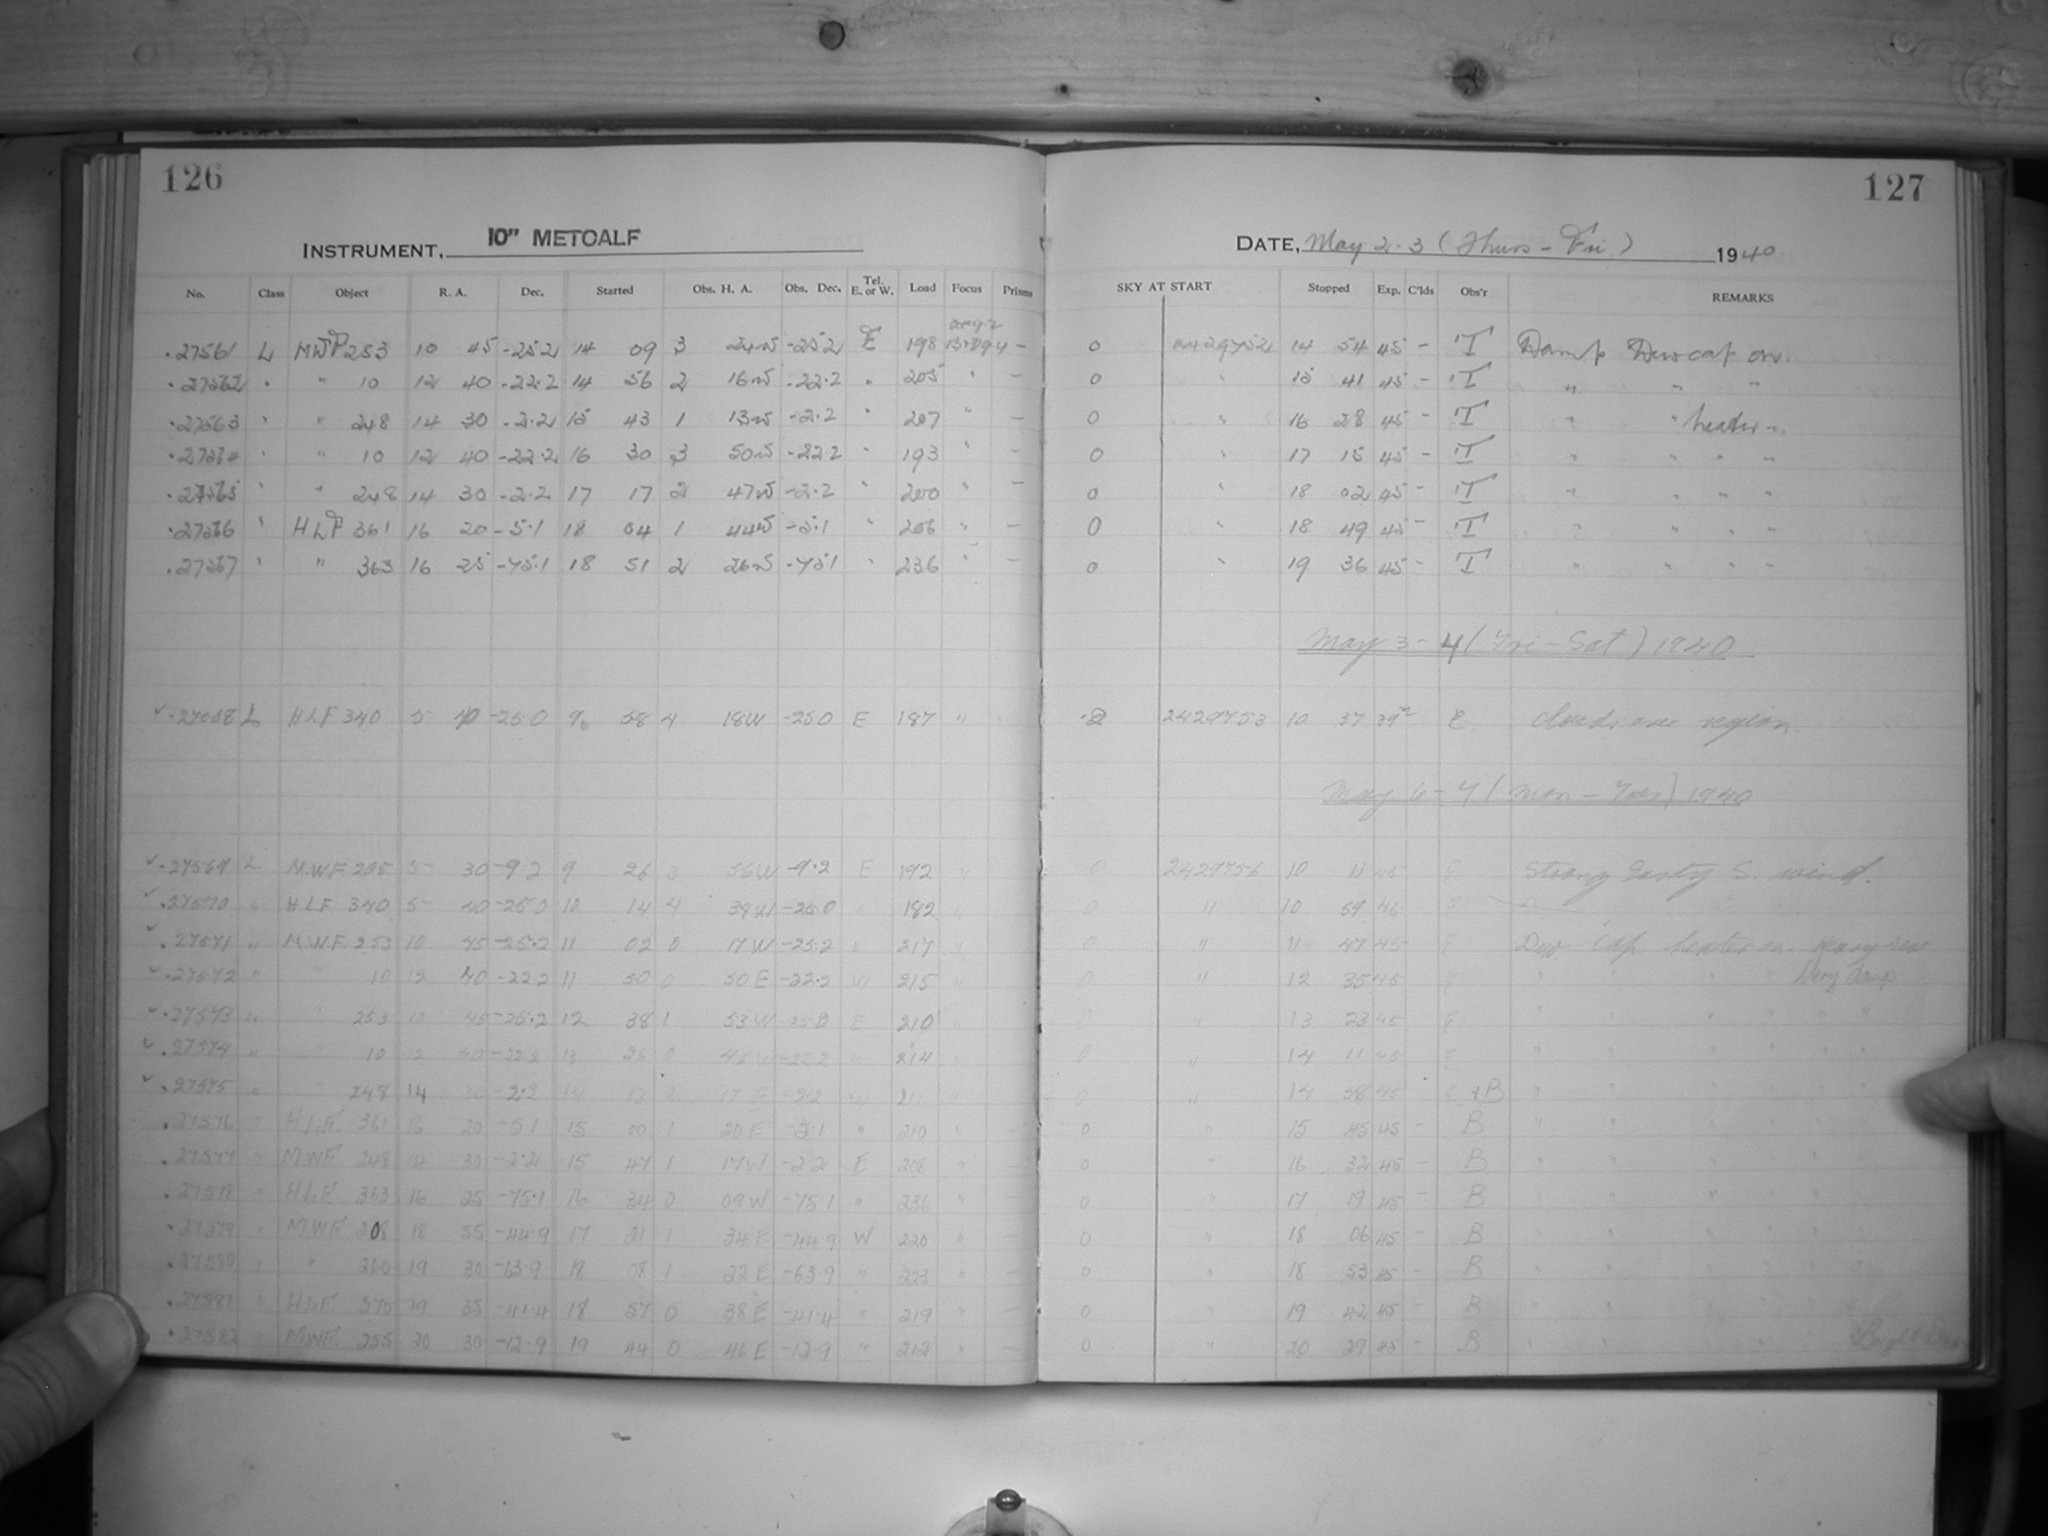 126
127
INSTRUMENT, 10" METCALF
DATE, May 2-3 (Thurs - Fri.) 1940
No. Class Object R. A. Dec. Started Obs. H. A. Obs. Dec. Tel. E. or W. Load Focus Prisms SKY AT START Stopped Exp. C'lds Obs'r REMARKS
.27561 L MWF 253 10 45 -25.2 14 09 3 24W -25.2 E 198 - 0 2429752 14 54 45 - T Damp Dew cap on.
.27562 " " 10 12 40 -22.2 14 56 2 16W -22.2 " 205 " - 0 " 15 41 45 - T " " "
.27563 " " 248 14 30 -2.2 15 43 1 13W -2.2 " 207 " - 0 " 16 28 45 - T " " heater ".
.27564 " " 10 12 40 -22.2 16 30 3 50W -22.2 " 193 " - 0 " 17 15 45 - T " " " "
.27565 " " 248 14 30 -2.2 17 17 2 47W -2.2 " 200 " - 0 " 18 02 45 - T " " " "
.27566 " HLF 361 16 20 -5.1 18 04 1 44W -5.1 " 206 " - 0 " 18 49 45 - T " " " "
.27567 " " 363 16 25 -75.1 18 51 2 26W -75.1 " 236 " - 0 " 19 36 45 - T " " " "
May 3-4 (Fri-Sat) 1940
.27568 L HLF 340 5 40 -25.0 9 58 4 18W -25.0 E 187 " 2429753 10 37 39 E Clouds over region.
May 6-7 (Mon-Tues) 1940
.27569 L MWF 295 5 30 -9.2 9 26 3 56W -9.2 E 192 " 0 2429756 10 11 45 E Strong Gusty S. wind.
.27570 " HLF 340 5 40 -25.0 10 14 4 39W -25.0 " 182 " 0 " 10 59 45 E
.27571 " MWF 253 10 45 -25.2 11 02 0 17W -25.2 " 217 " 0 " 11 47 45 E Dew Cap heater on. Heavy dew
.27572 " " 10 12 40 -22.2 11 50 0 50E -22.2 W 215 " 0 " 12 35 45 E " " " Very damp
.27573 " " 253 10 45 -25.2 12 38 1 53W E 210 " 0 " 13 23 45 E " " " " " "
.27574 " " 10 12 40 -22.2 13 26 0 46W -22.2 " 214 " 0 " 14 11 45 E " " " " " "
.27575 " " 248 14 30 -2.2 14 13 0 17E -2.2 W " 0 " 14 58 45 E+B " " " " " "
.27576 " HLF 361 16 20 -5.1 15 00 1 30E -5.1 " 210 " - 0 " 15 45 45 - B " " " " " "
.27577 " MWF 248 14 30 -2.2 15 47 1 17W -2.2 E 208 " - 0 " 16 32 45 - B " " " " " "
.27578 " HLF 363 16 25 -75.1 16 34 0 09W -75.1 " 236 " - 0 " 17 19 45 - B " " " " " "
.27579 " MWF 208 18 55 -44.9 17 21 1 34E -44.9 W 220 " - 0 " 18 06 45 - B " " " " " "
.27580 " " 260 19 30 -63.9 18 08 1 22E -63.9 " 223 " - 0 " 18 53 45 - B " " " " " "
.27581 " HLF 370 19 35 -41.4 18 57 0 38E -41.4 " 219 " - 0 " 19 42 45 - B " " " " "
.27582 " MWF 255 20 30 -12.9 19 44 0 46E -12.9 " 212 " - 0 " 20 29 45 - B " " " " Bright